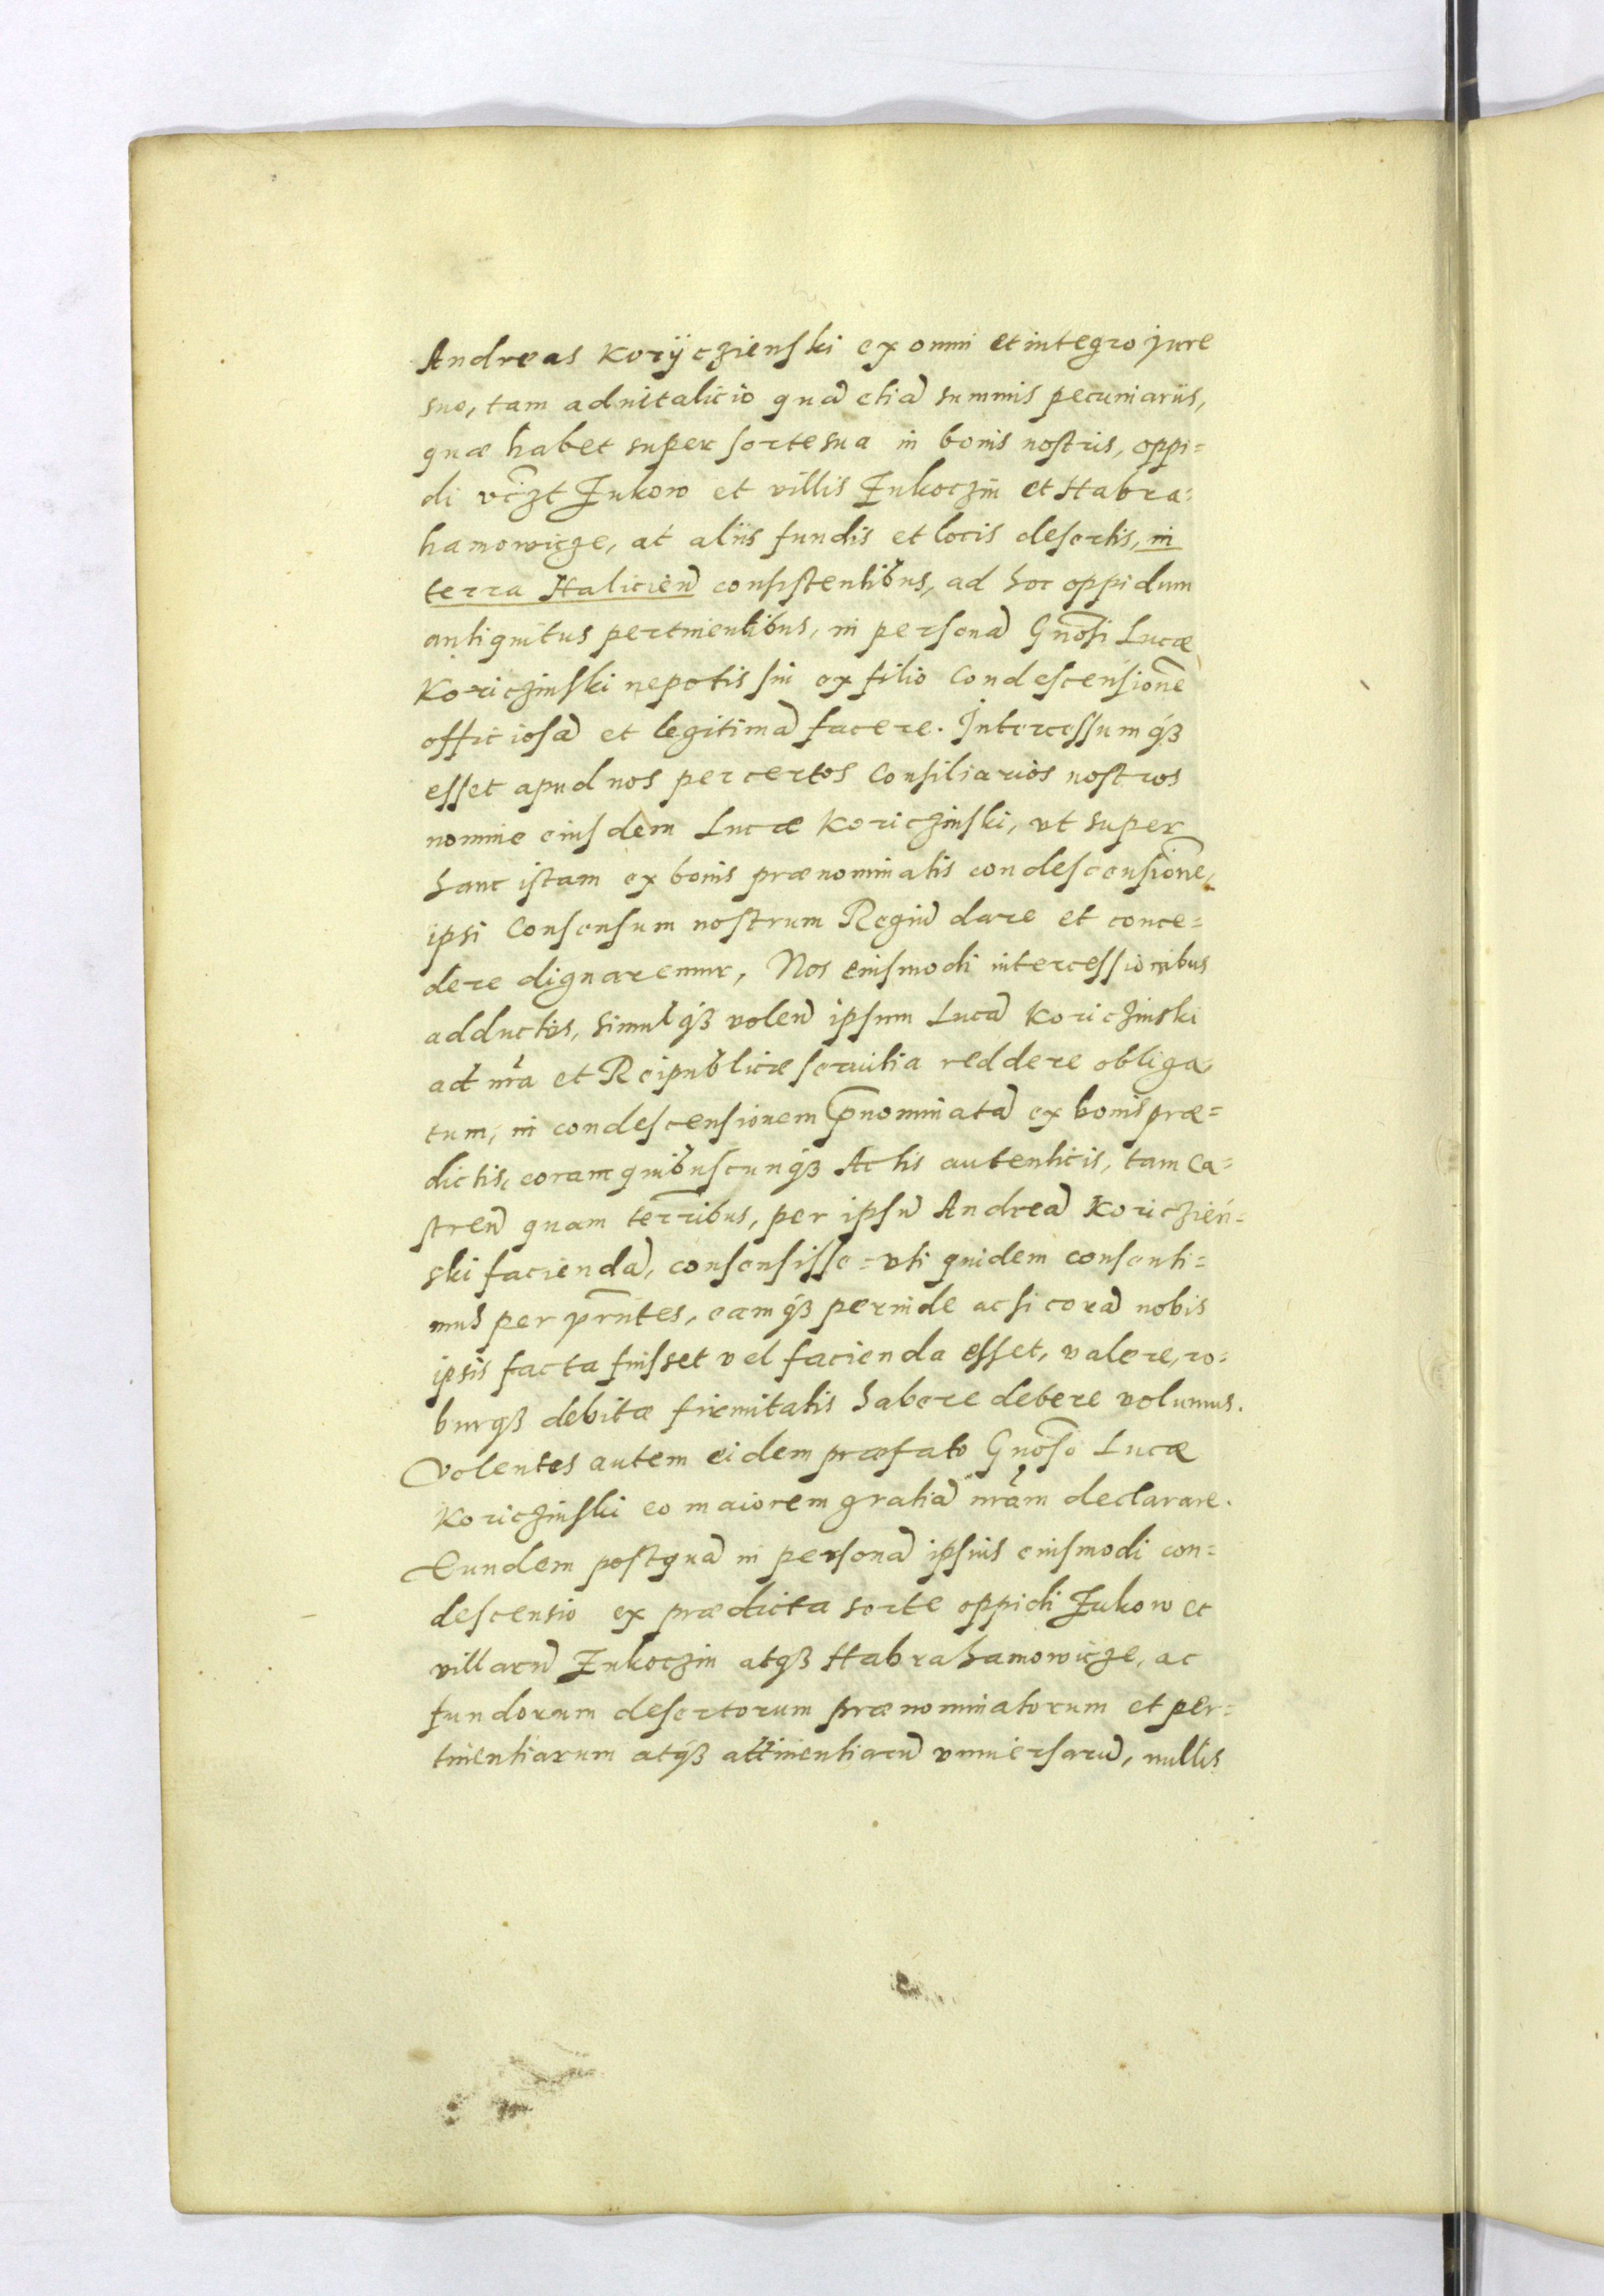 Andreas Korÿczienski ex omni et integro jure
suo, tam aduitalicio quã etiã summis pecuniariis,
quæ habet super sorte sua in bonis nostris, oppi=
di vĉzt Zukow et villis Zukoczin et Habra=
hamowicze, at aliis fundis et locis desertis, in
terra Haliciens̃ consistentibus, ad hoc oppidum
antiquitus pertinentibus, in personã Gnõsi Lucæ
Koriczinski nepotis sui ex filio Condescensionẽ
officiosã et legitimã facere. Intercessumqꝫ
esset apud nos per certos Consiliarios nostros
nomine eiusdem Lucæ Koriczinski, vt super
hanc istam ex bonis prænominatis condescensionẽ,
ipsi Consensum nostrum Regiũ dare et conce=
dere dignaremur, Nos eiusmodi intercessionibus
adductis, simulqꝫ volen̄ ipsum Lucã Koriczinski
ad nr̃a et Reipublicæ seruitia reddere obliga=
tum, in condescensionem p̄nominatã ex bonis præ=
dictis, coram quibuscunqꝫ Actis autenticis, tam Ca=
stren̄ quam terr̃ibus, per ipsũ Andreã Koriczień=
ski faciendã, consensisse = vti quidem consenti=
mus per pr̃ntes, eamqꝫ perinde ac si corã nobis
ipsis facta fuisset vel facienda esset, valere, ro=
burqꝫ debitæ firmitatis habere debere volumus.
Volentes autem eidem præfato Gnõso Lucæ
Koriczinski eo maiorem gratiã nr̃am declarare.
Eundem postquã in personã ipsius eiusmodi con=
descensio ex prædicta sorte oppidi Zukow et
villarũ Zukoczin atqꝫ Habrahamowicze, ac
fundorum desertorum prænominatorum et per=
tinentiarum atqꝫ attinentiarũ vniuersarũ, nullis